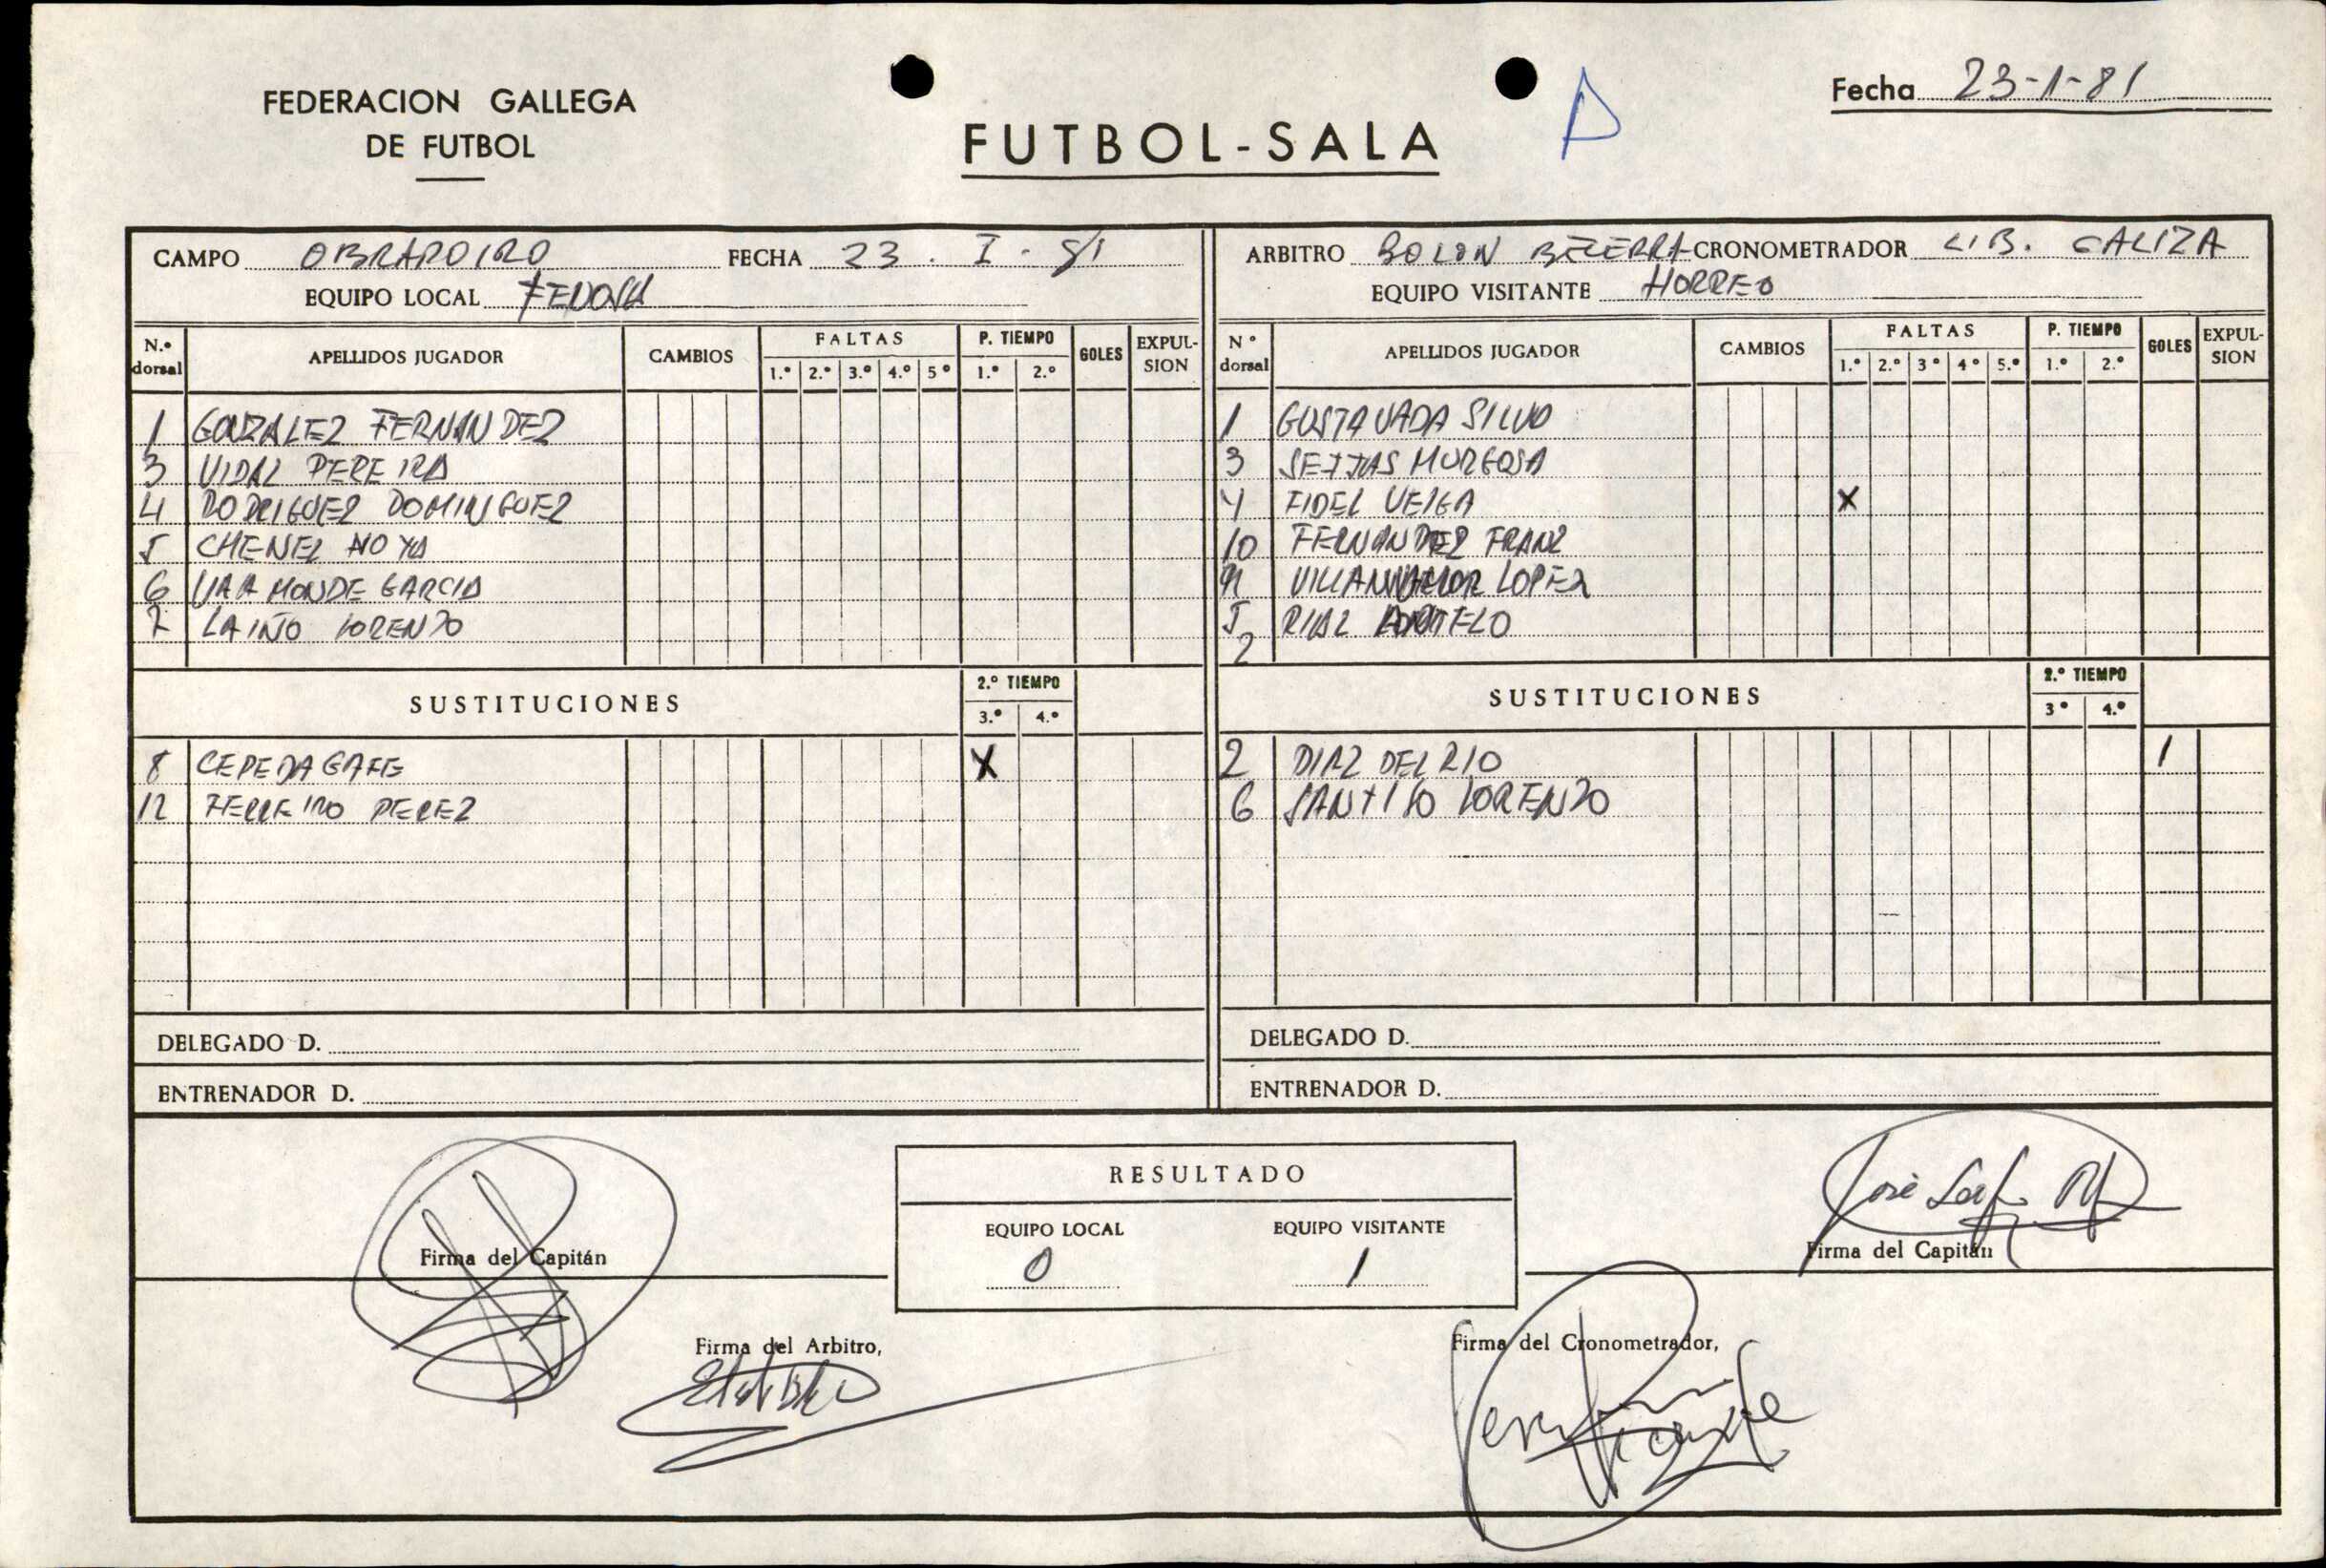 FEDERACION GALLEGA
DE FUTBOL
FUTBOL-SALA
Fecha 23-1-81
CAMPO OBRADOIRO FECHA 23. I-81
EQUIPO LOCAL FENOSA
ARBITRO BOLON BECERRA CRONOMETRADOR LIB. GALIZA
EQUIPO VISITANTE HORREO
N.º dorsal APELLIDOS JUGADOR CAMBIOS FALTAS 1.º 2.º 3.º 4.º 5º P. TIEMPO 1.º 2.º GOLES EXPULSION
1 GONZALEZ FERNANDEZ
3 VIDAL PEREIRA
4 RODRIGUEZ DOMINGUEZ
5 CHENEL NOYA
6 VAAMONDE GARCIA
7 LAIÑO LORENZO
SUSTITUCIONES 2.º TIEMPO 3.º 4.º
8 CEPEDA X
12 FERREIRO PEREZ
DELEGADO D.
ENTRENADOR D.
Nº dorsal APELLIDOS JUGADOR CAMBIOS FALTAS 1.º 2.º 3º 4º 5.º P. TIEMPO 1.º 2.º GOLES EXPULSION
1 SILVO
3 SEIJAS
4 FIDEL VEIGA X
10 FERNANDEZ
LOPEZ
5 RIAL
2
SUSTITUCIONES 2.º TIEMPO 3º 4.º
2 DIAZ DEL RIO 1
6 LORENZO
DELEGADO D.
ENTRENADOR D.
RESULTADO
EQUIPO LOCAL EQUIPO VISITANTE
0 1
Firma del Capitán
José
Firma del Capitán
Firma del Arbitro,
Firma del Cronometrador,